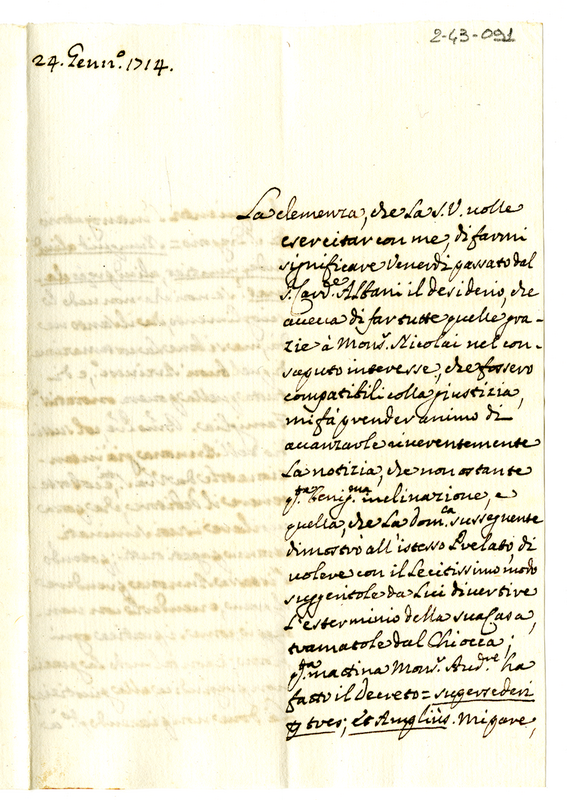 2-43-091
24. Genn.º 1714.
La clemenza, che La S. V. volle
esercitar con me, di farmi
significare Venerdì passato dal
S. Card.e Albani il desiderio, che
aveva di far tutte quelle gra-
zie à Mons.r Nicolai nel con-
saputo interesse, che fossero
compatibili colla giustizia,
mi fà prender animo di
avanzarle riverentemente
La notizia, che non ostante
q.ta benig.ma inclinazione, e
quella, che La dom.ca susseguente
dimostrò all'istesso Prelato, di
volere con il Lecitissimo modo
suggeritole da Lui divertire
L'esterminio della sua Casa,
tramatole dal Chiocca;
q.ta mattina Mons.r Aud.re ha
fatto il Decreto = supersederi
tres; et Amplius. Mi pare,